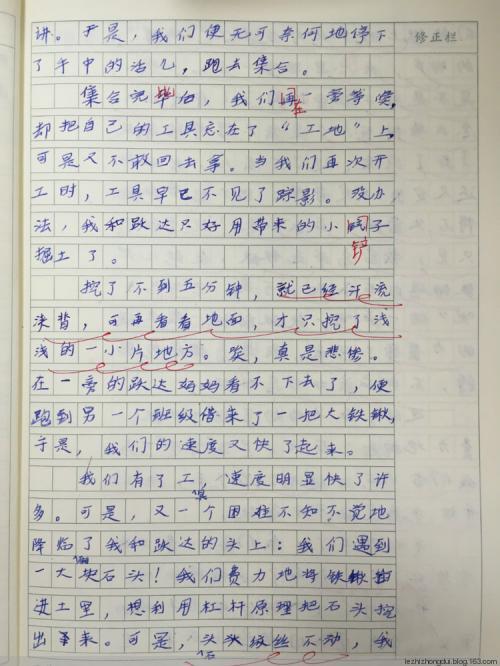 讲。于是，我们便无可奈何地停下
修正栏
了手中的活儿，跑去集合。
集合完毕后，我们再一
在
却把自己的工具忘在了“工地”上，
可是又不敢回去拿。当我们再次开
工时，工具早已不见了踪影。没办
法，我和跃达只好用带来的小子
铲
掘土了。
挖了不到五分钟，就已经汗流
浃背，可再看看地面，才只挖了浅
浅的一小片地方。唉，真是悲惨。
在一旁的跃达妈妈看不下去了，便
跑到另一个班级借来了一把大铁锹，
于是，我们的速度又快了起来。
我们有了工具，速度明显快了许
多。可是，又一个困难不知不觉地
降焰了我和跃达的头上：我们遇到
一大块石头！我们费力地将铁锹
进土里，想利用杠杆原理把石头挖
出来。可是，石头纹丝不动，我
lezhizhongdui.blog.163.com